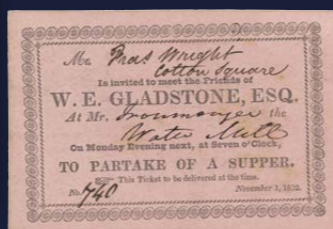 Mr. Thos Wright
Cotton Square
Is invited to meet the Friends of
W. E. GLADSTONE, ESQ.
At Mr. Ironmonger the
Water Mill
On Monday Evening next, at Seven o'Clock,
TO PARTAKE OF A SUPPER.
This Ticket to be delivered at the time.
No. 740 November 1, 1832.